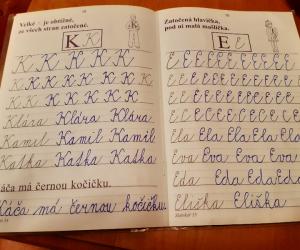 Velké - je obtížné,
ze všech stran zatočené.
K K
K K K K K
K K K K K K
K K K K K K K
Klára Klára Klára
Kamil Kamil Kamil
Katka Katka Katka
Káča má černou kočičku.
Káča má černou kočičku
Zatočená hlavička,
pod ní malá mašlička.
E E
Ela Ela Ela Ela Ela
Eva Eva Eva Eva
Eda Eda Eda Eda
Eliška Eliška